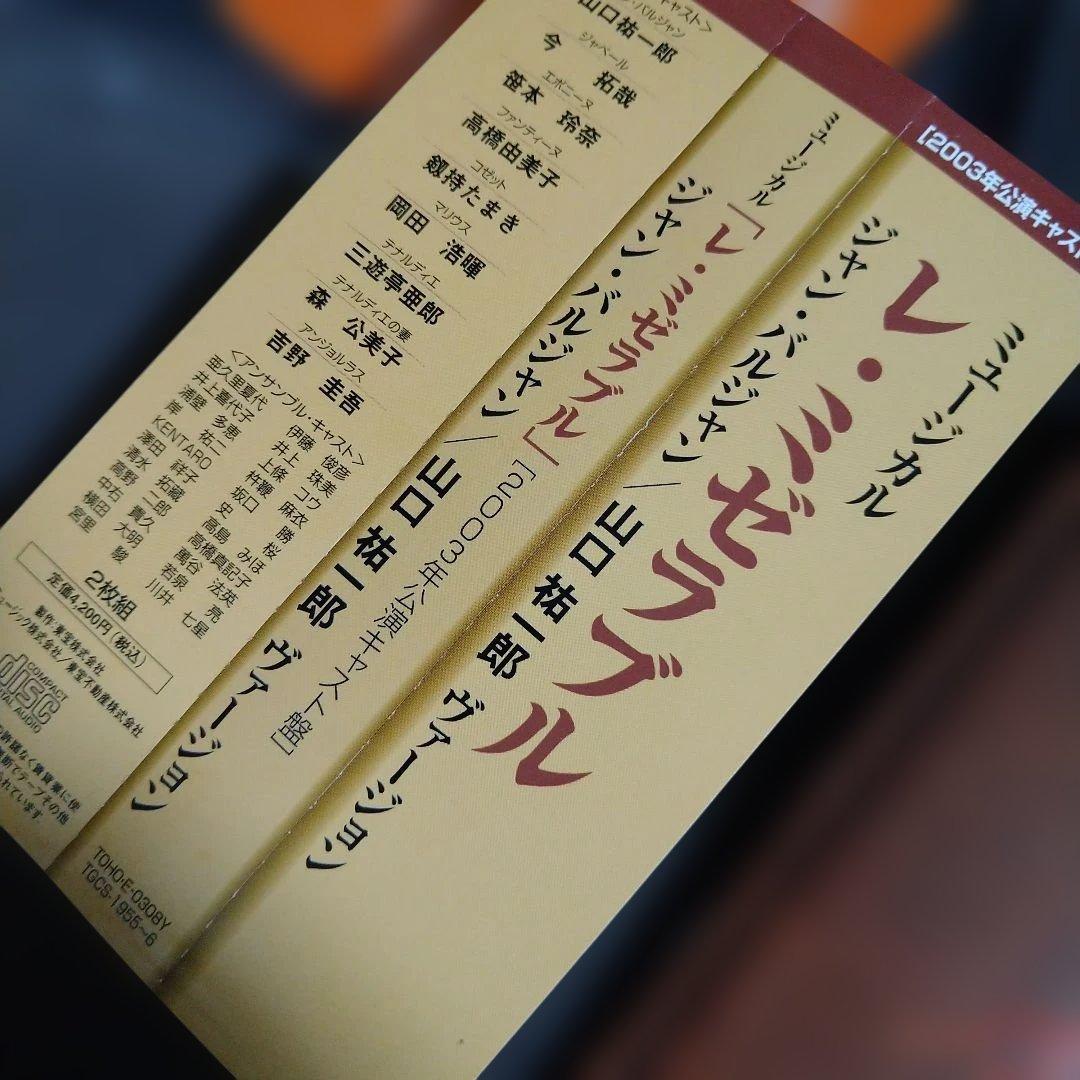 [2003年公演キャス
ミュージカル
レ・ミゼラブル
ジャン・バルジャン/山口祐一郎 ヴァージョン
ミュージカル「レ・ミゼラブル」[2003年公演キャスト盤]
ジャン・バルジャン/山口祐一郎 ヴァージョン
TOHO-E-0308Y
TGCS-1955~6
キャスト>
・バルジャン
山口祐一郎
ジャベール
今 拓哉
エポニーヌ
笹本 玲奈
ファンティーヌ
高橋由美子
コゼット
剱持たまき
マリウス
岡田 浩暉
テナルディエ
三遊亭亜郎
テナルディエの妻
森 公美子
アンジョルラス
吉野 圭吾
<アンサンブル・キャスト>
亜久里夏代 伊藤 俊彦
井上喜代子 井上 珠美
浦壁 多恵 上條 コウ
岸 祐二 杵鞭 麻衣
KENTARO 坂口 勝
澤田 祥子 史 桜
清水 拓蔵 高島 みほ
高野 二郎 高橋真記子
中石 貴久 萬谷 法英
横田 大明 若泉 亮
宮里 駿 川井 七星
2枚組
定価4,200円(税込)
製作:東宝株式会社
ュージック株式会社/東宝不動産株式会社
COMPACT
disc
ITAL AUDIO
許諾なく賃貸業に使
無断でテープその他
られています。